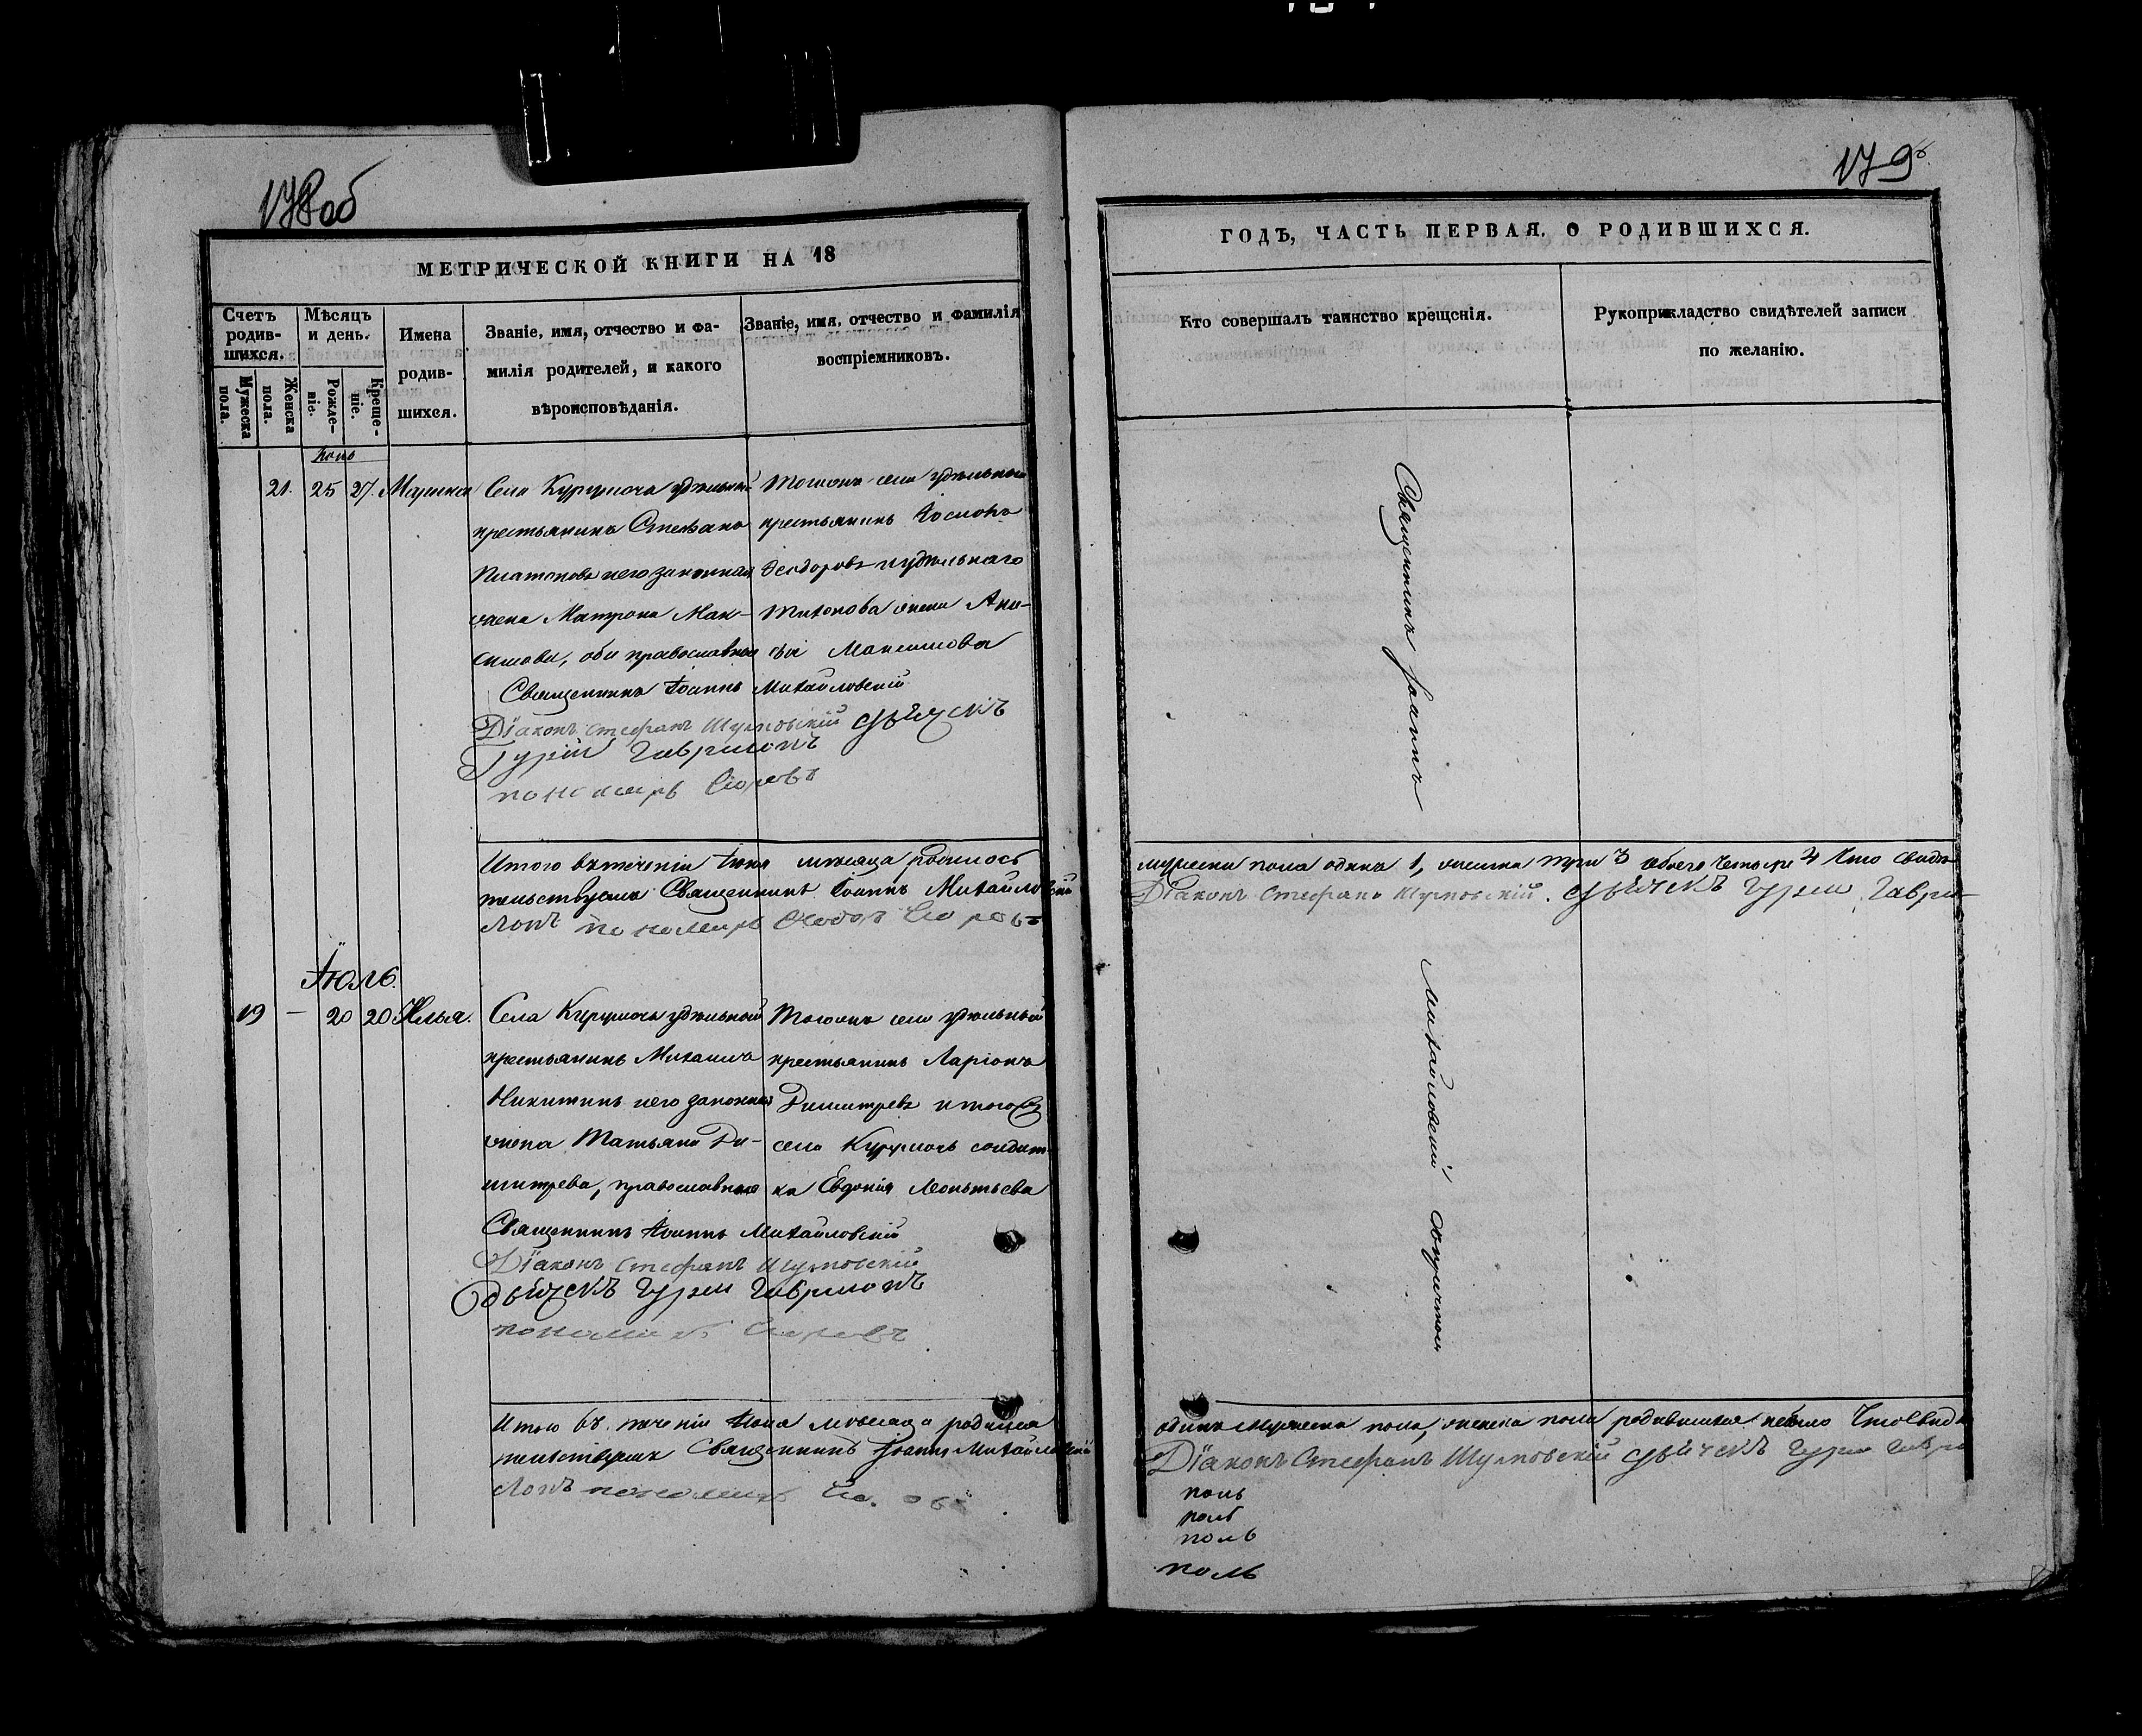 178об
МЕТРИЧЕСКОЙ КНИГИ НА 18
Счетъ родив-шихся.
Мужеска пола.
Женска пола.
Мѣсяцъ и день.
Рожде-ніе.
Креще-ніе.
Имена родив-шихся.
Званіе, имя, отчество и фа-
милія родителей, и какого
вѣроисповѣданія.
Званіе, имя, отчество и фамилія
воспріемниковъ.
21. 25 27. Марина
Села Курумоча удѣльный
крестьянинъ Стефанъ
Платоновъ и его законная
жена Матрона Мак-
симова, оба православные
Тогожъ села удѣльный
крестьянинъ
Феодоровъ и удѣльнаго
Тихонова жена Ани-
сія Максимова
Священникъ Іоаннъ Михайловскій
Діаконъ Стефанъ Шумовскій дьячекъ
Гурій Гавриловъ
пономарь
Итого въ теченіи Іюня мѣсяца родилось
тельствуемъ Священникъ Іоаннъ Михайловскій
ловъ пономарь
Іюль.
19 — 20 20 Илья.
Села Курумоча удѣльный
крестьянинъ Михаилъ
Никитинъ и его законная
жена Татьяна Ди-
митрева, православные
Тогожъ села удѣльный
крестьянинъ Ларіонъ
Димитревъ и тогожъ
села Курумочь солдат-
ка Евдокія Леонтьева
Священникъ Іоаннъ Михайловскій
Діаконъ Стефанъ Шумовскій
дьячекъ Гурій Гавриловъ
пономарь
Итого въ теченіи Іюля мѣсяца родился
тельствуемъ Священникъ Іоаннъ Михайловскій
ловъ пономарь
179
ГОДЪ, ЧАСТЬ ПЕРВАЯ, О РОДИВШИХСЯ.
Кто совершалъ таинство крещенія.
Рукоприкладство свидѣтелей записи
по желанію.
Священникъ Іоаннъ
мужеска пола одинъ 1, женска три 3 обоего четыре 4 Что свидѣ-
Діаконъ Стефанъ Шумовскій. дьячекъ Гурій Гаври-
Михайловскій съ причтомъ
одинъ мужеска пола, женска пола родившихся небыло Что свидѣ
Діаконъ Стефанъ Шумовскій дьячекъ Гурій Гаври